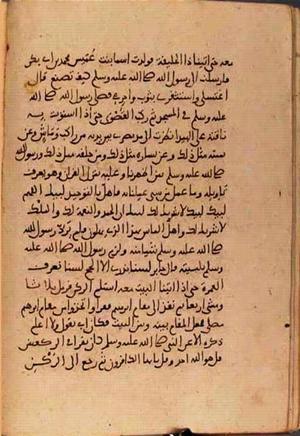 معه حتى اتينا ذا الحليفة فولدت اسما بنت عميس محمد بن ابي بكر
فارسلت الى رسول الله صلى الله عليه وسلم كيف اصنع قال
اغتسلي واستثفري بثوب واحرمي فصلى رسول الله صلى الله
عليه وسلم في المسجد ثم ركب القصوى حتى اذا استوت به
ناقته على البيدا نظرت الى مد بصري بين يديه من راكب وماش وعن
يمينه مثل ذلك وعن يساره مثل ذلك ومن خلفه مثل ذلك ورسول الله
صلى الله عليه وسلم بين اظهرنا وعليه ينزل القران وهو يعرف
تاويله وما عمل من شي عملنا به فاهل بالتوحيد لبيك اللهم
لبيك لبيك لا شريك لك لبيك ان الحمد والنعمة لك والملك
لا شريك لك واهل الناس بهذا الذي يهلون فلم يرد رسول الله
صلى الله عليه وسلم شيا منه ولزم رسول الله صلى الله عليه
وسلم تلبيته قال جابر لسنا ننوي الا الحج لسنا نعرف
العمرة حتى اذا اتينا البيت معه استلم الركن فرمل ثلاثا
ومشى اربعا ثم نفذ الى مقام ابرهيم فقرا واتخذوا من مقام ابرهيم
مصلى فجعل المقام بينه وبين البيت فكان ابي يقول ولا اعلم
ذكره الا عن النبي صلى الله عليه وسلم كان يقرا في الركعتين
قل هو الله احد وقل يا ايها الكافرون ثم رجع الى الركن